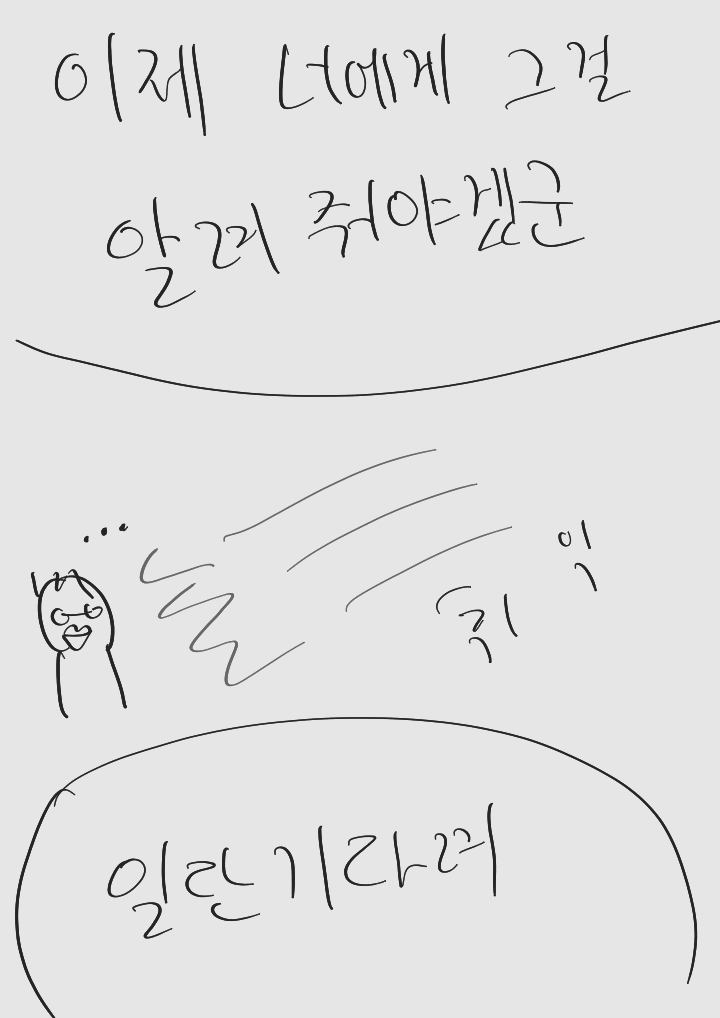 이제 너에게 그걸
알려 줘야겠군
...
직 익
일단 기다려